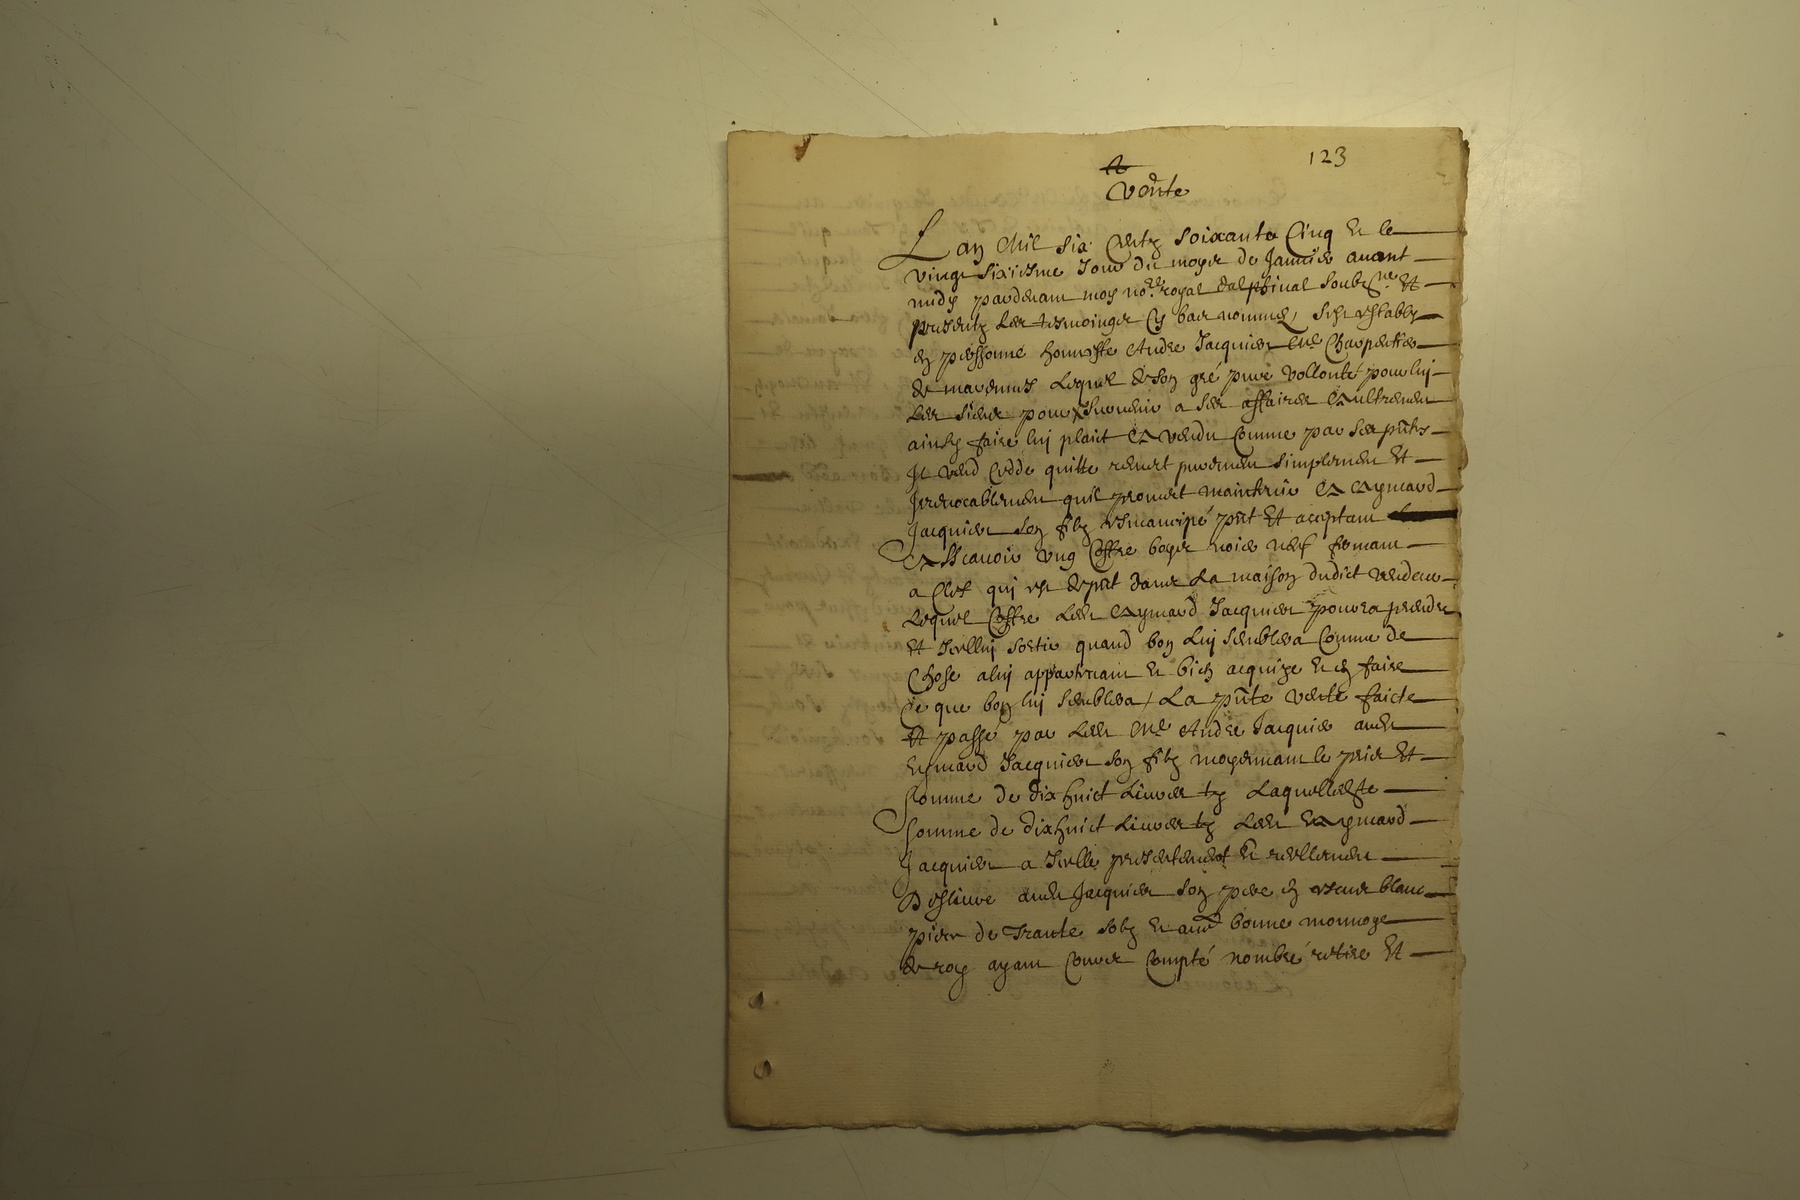 123
Vente
Lan Mil six Centz soixante Cinq & le
vingt sixiesme Jour du moys de Janvier avant
midy pardevant moy no.re royal dalphinal soubz.né Et
presentz les tesmoingtz Cy bas nommez, sest estably
en personne honneste Andre Jacquier Me Charpentier
de lequel de son gré pure vollonté pour luy
les siens pour subvenir a ses affaires & aultrement
ainsy faire luy plaict a vendu Comme par ses pntes
Il vend Cedde quitte remet purement simplement Et
Irrevocablement quil promet maintenir a Aymard
Jacquier son filz esmancipé pnt Et acceptant
a Scavoir ung Coffre boys noier neuf fermant
a Clef qui est de pnt dans la maison dudict vendeur
lequel Coffre led Aymard Jacquier pourra prendre
Et Icelluy sortir quand bon luy semblera Comme de
Chose a luy appartenant & bien acquize & en faire
Ce que bon luy semblera, La pnte vente faicte
Et passé par led Me Andre Jacquier aud
Eymard Jacquier son filz moyennant le prix Et
somme de dix huict Livres tz laquelle
somme de dix huict Livres tz led Aymard
Jacquier a Icelle presentement & reellement
deslivré aud Jacquier son pere en escus blanc
piece de Trante solz & aud bonne monnoye
de roy ayant Cours Compté nombré retiré Et